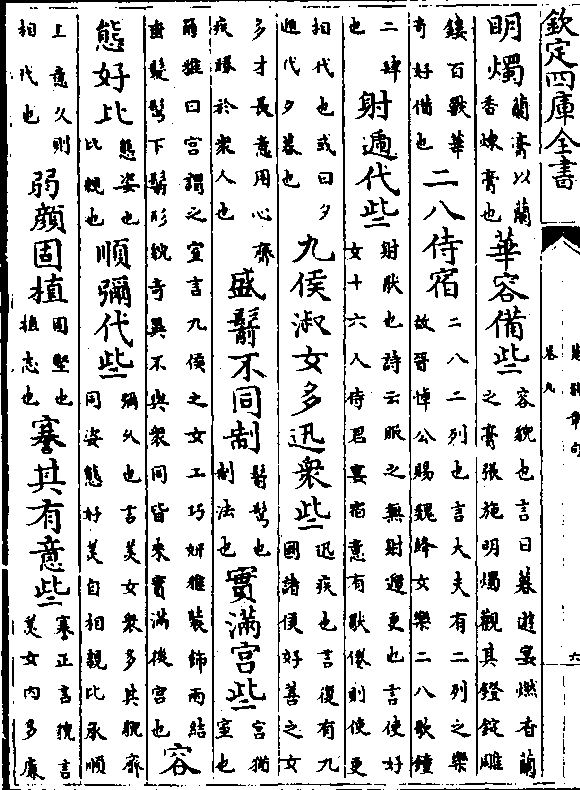 欽定四庫全書
楚辭章句
卷九
六
明燭蘭膏以蘭香煉膏也華容備些容貌也言日暮遊宴燃香蘭之膏張施明燭觀其鐙錠雕
鏤百獸華奇好備也二八侍宿二八二列也言大夫有二列之樂故晉悼公賜魏絳女樂二八歌鐘
二肆也射遞代些射厭也詩云服之無射遞更也言使好女十六人侍君宴宿意有厭倦則使更
相代也或曰夕遞代夕暮也九侯淑女多迅衆些迅疾也言復有九國諸侯好善之女
多才長意用心齊疾勝於衆人也盛鬋不同制鬋鬢也制法也實滿宫些宫猶室也
爾雅曰宫謂之室言九侯之女工巧妍雅裝飾兩結垂髮鬢下鬋形貌奇異不與衆同皆來實滿後宫也容
態好比態姿也比親也順彌代些彌久也言美女衆多其貌齊同姿態好美自相親比承順
上意久則相代也弱顔固植固堅也植志也謇其有意些謇正言貌言美女内多廉